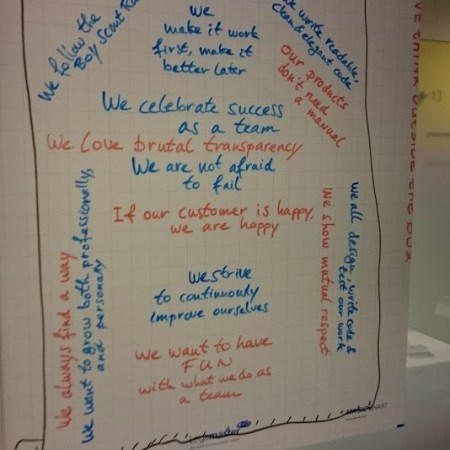 We follow the
Boy Scout
We
make it work
first, make it
better later
write readable,
clean & elegant code
Our products
don't need
a manual
We celebrate success
as a team
We love brutal transparency
We are not afraid
to fail
If our customer is happy,
we are happy
We always find a way
We want to grow both professionally,
and personally
We all design, write code &
test our work
We show mutual respect
We strive
to continously
improve ourselves
We want to have
FUN
with what we do as
a team
THINK OUTSIDE THE BOX